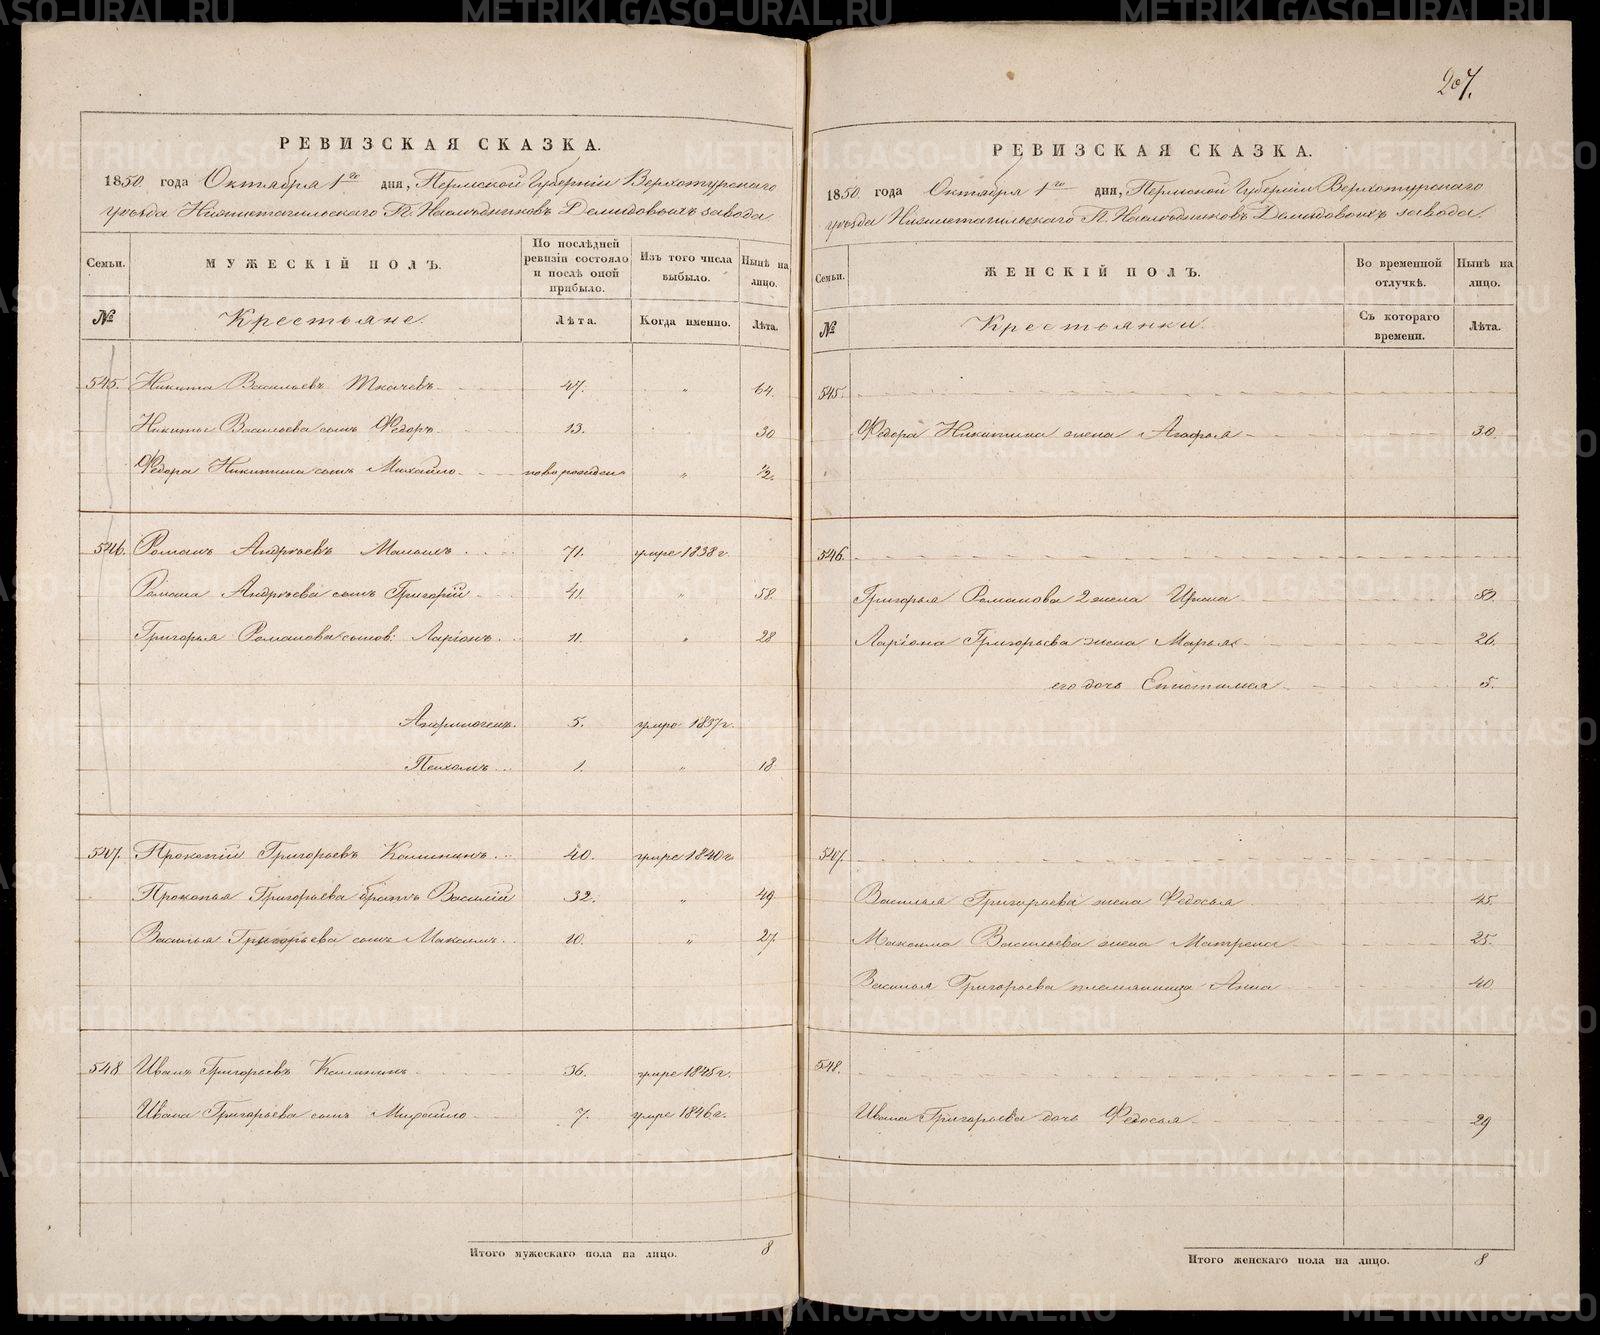 207.
РЕВИЗСКАЯ СКАЗКА.
1850 года Октября 1го дня, Пермской Губерніи Верхотурскаго
уѣзда Нижнетагильскаго Г. Наслѣдниковъ Демидовыхъ завода
Семьи. МУЖЕСКІЙ ПОЛЪ. По послѣдней ревизіи состояло и послѣ оной прибыло. Изъ того числа выбыло. Нынѣ на лицо.
№ Крестьяне. Лѣта. Когда именно. Лѣта.
545. Никита Васильевъ Ткачевъ 47. " 64.
Никиты Васильева сынъ Федоръ 13. 30
Федора Никитина сынъ Михайло новорожден " 1/2.
546. Романъ Андреевъ 71. умре 1838 г.
Романа Андреева сынъ Григорій 41. " 58.
Григорья Романова сынов: Ларіонъ 11. " 28
5. умре 1837 г.
1. " 18
547. Прокопій Григорьевъ Калининъ 40. умре 1840 г
Прокопья Григорьева братъ Василій 32. " 49
Василья Григорьева сынъ Максимъ 10. " 27.
548 Иванъ Григорьевъ Калининъ 36. умре 1845 г.
Ивана Григорьева сынъ Михайло 7. умре 1846 г.
Итого мужескаго пола на лицо. 8
РЕВИЗСКАЯ СКАЗКА.
1850 года Октября 1го дня, Пермской Губерніи Верхотурскаго
уѣзда Нижнетагильскаго Г. Наслѣдниковъ Демидовыхъ завода.
Семьи. ЖЕНСКІЙ ПОЛЪ. Во временной отлучкѣ. Нынѣ на лицо.
№ Крестьянки. Съ котораго времени. Лѣта.
545.
Федора Никитина жена Агафья 30.
546.
Григорья Романова 2 жена Ирина
Ларіона Григорьева жена Марья 26.
его дочь Епистимея 5.
547.
Василья Григорьева жена Федосья 45.
Максима Васильева жена Матрена 25.
Василья Григорьева племянница Анна 40
548.
Ивана Григорьева дочь Федосья 29
Итого женскаго пола на лицо. 8
METRIKI.GASO-URAL.RU